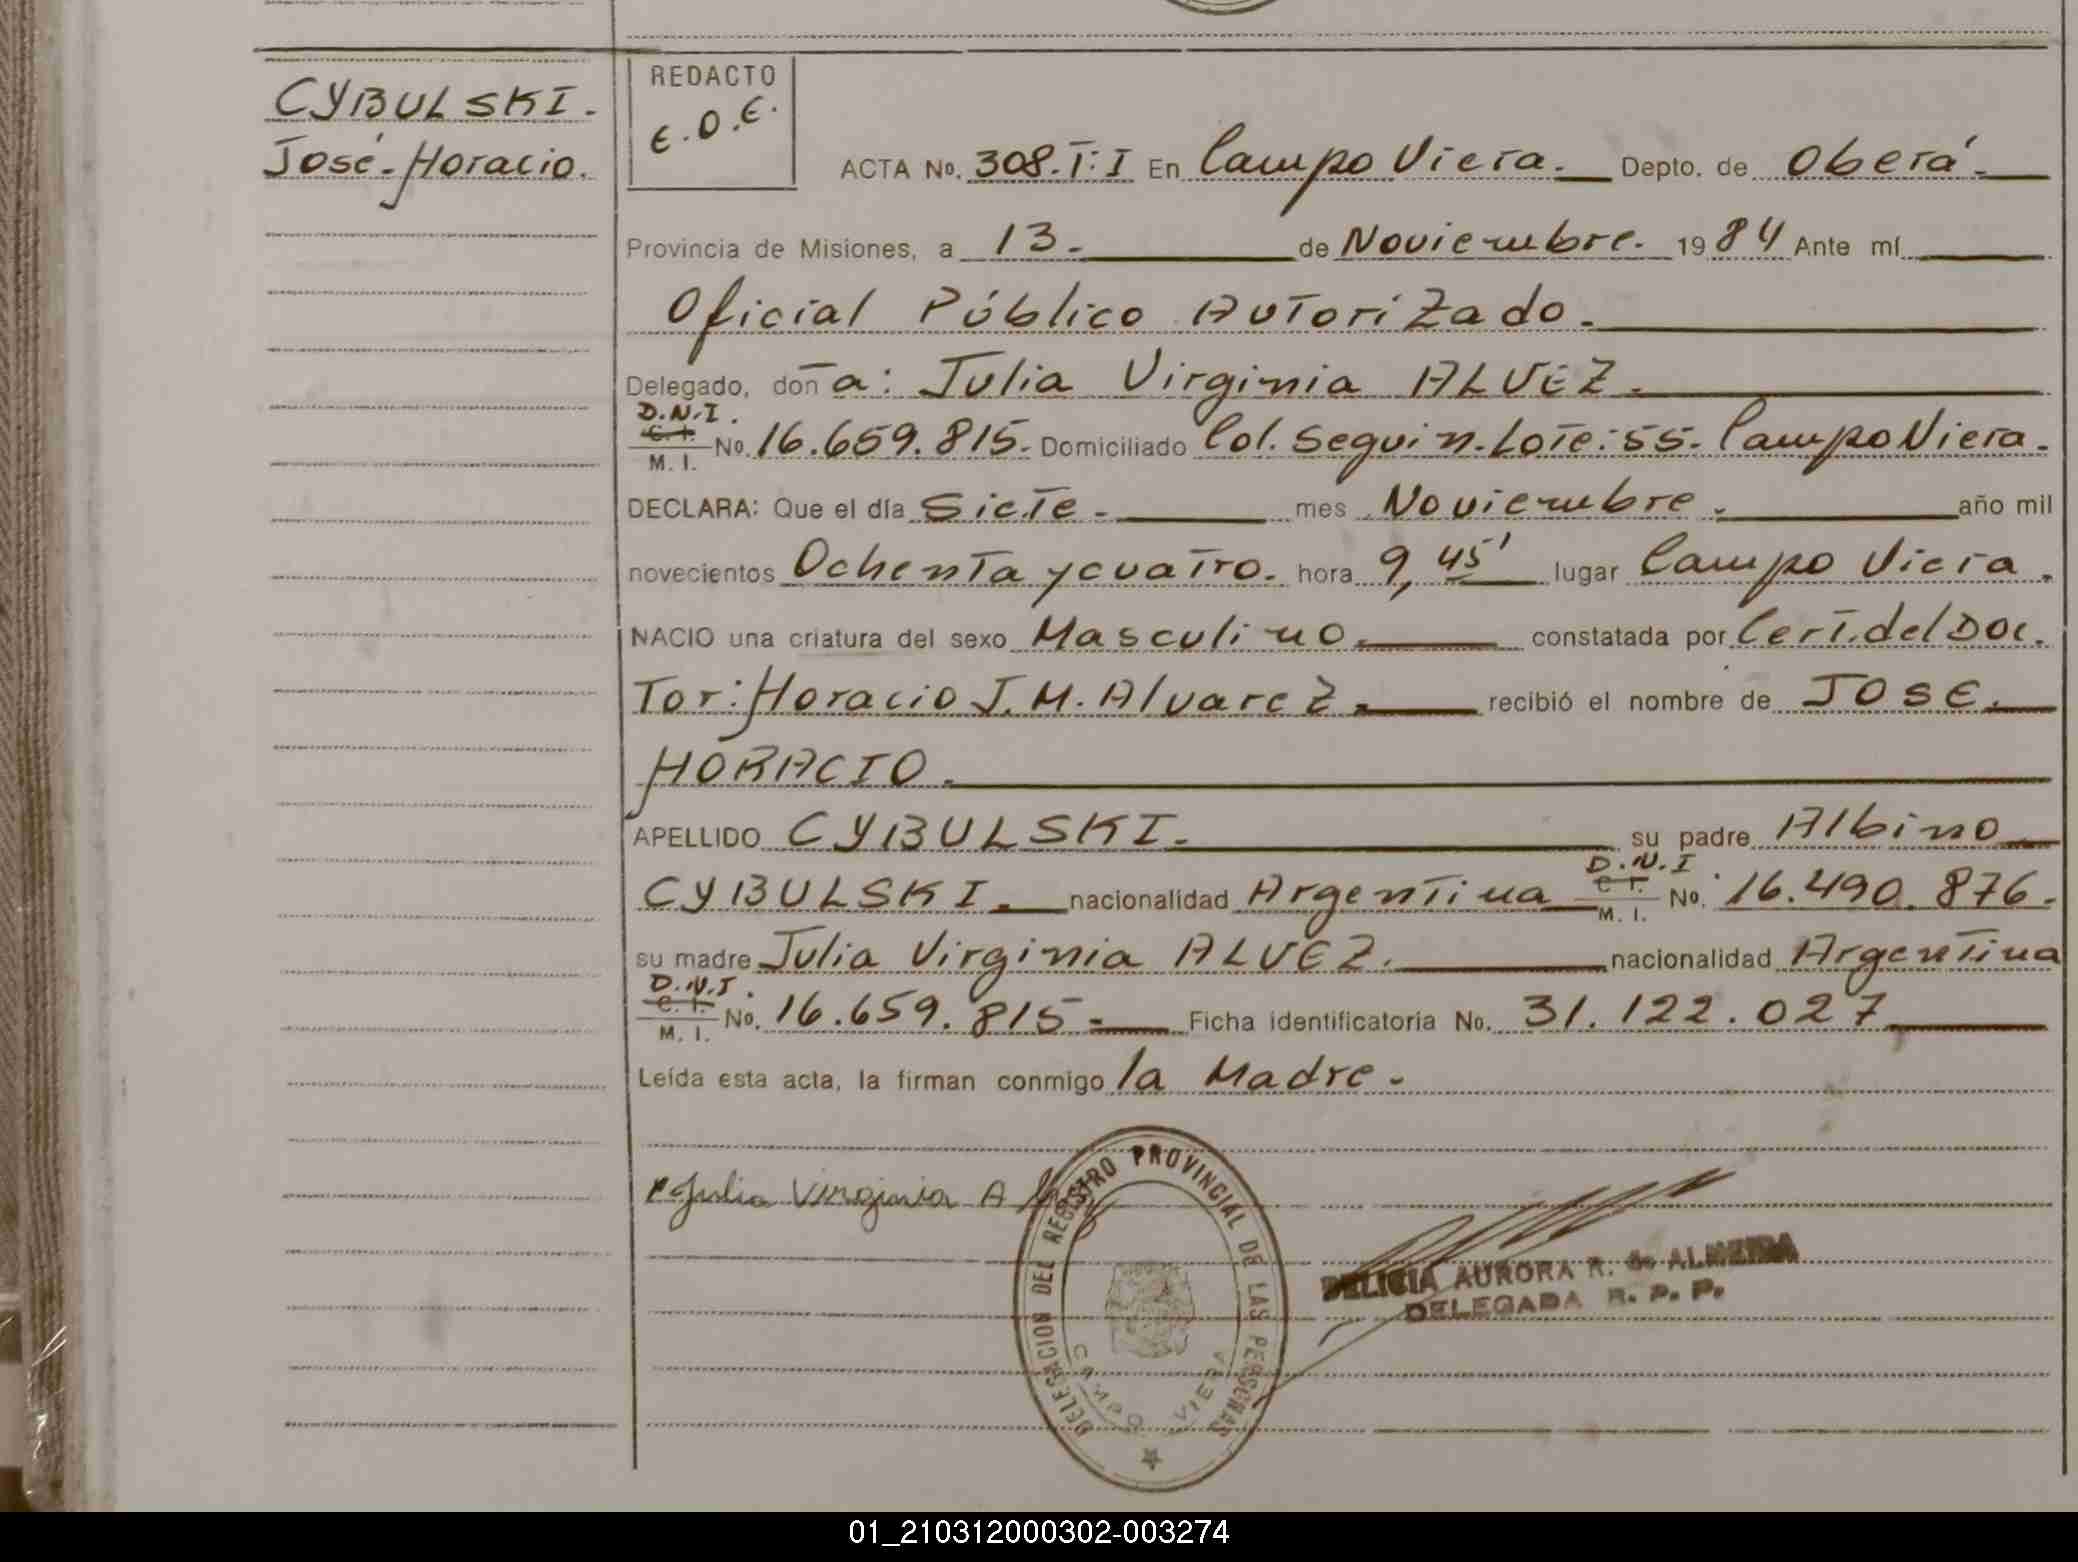 CYBULSKI.
José Horacio.
REDACTO
E.O.E.
ACTA No. 308.T:I En Campo Viera. Depto. de Oberá.
Provincia de Misiones, a 13. de Noviembre. 1984 Ante mí
Oficial Público Autorizado.
Delegado, don a: Julia Virginia ALVEZ.
D.N.I.
C. I.
M. I. No. 16.659.815. Domiciliado Col. Seguin. Lote: 55. Campo Viera.
DECLARA: Que el día Siete. mes Noviembre. año mil
novecientos Ochenta y cuatro. hora 9,45' lugar Campo Viera.
NACIO una criatura del sexo Masculino. constatada por Cert. del Doc.
Tor: Horacio J. M. Alvarez. recibió el nombre de JOSE.
HORACIO.
APELLIDO CYBULSKI. su padre Albino
D.N.I.
CYBULSKI. nacionalidad Argentina C. I. M. I. No. 16.490.876.
su madre Julia Virginia ALVEZ. nacionalidad Argentina
D.N.I.
C. I.
M. I. No. 16.659.815 Ficha identificatoria No. 31.122.027
Leída esta acta, la firman conmigo la Madre.
Julia Virginia A
DELEGACION DEL REGISTRO PROVINCIAL DE LAS PERSONAS
CAMPO VIERA
DELICIA AURORA R. de ALMEIDA
DELEGADA R. P. P.
01_210312000302-003274